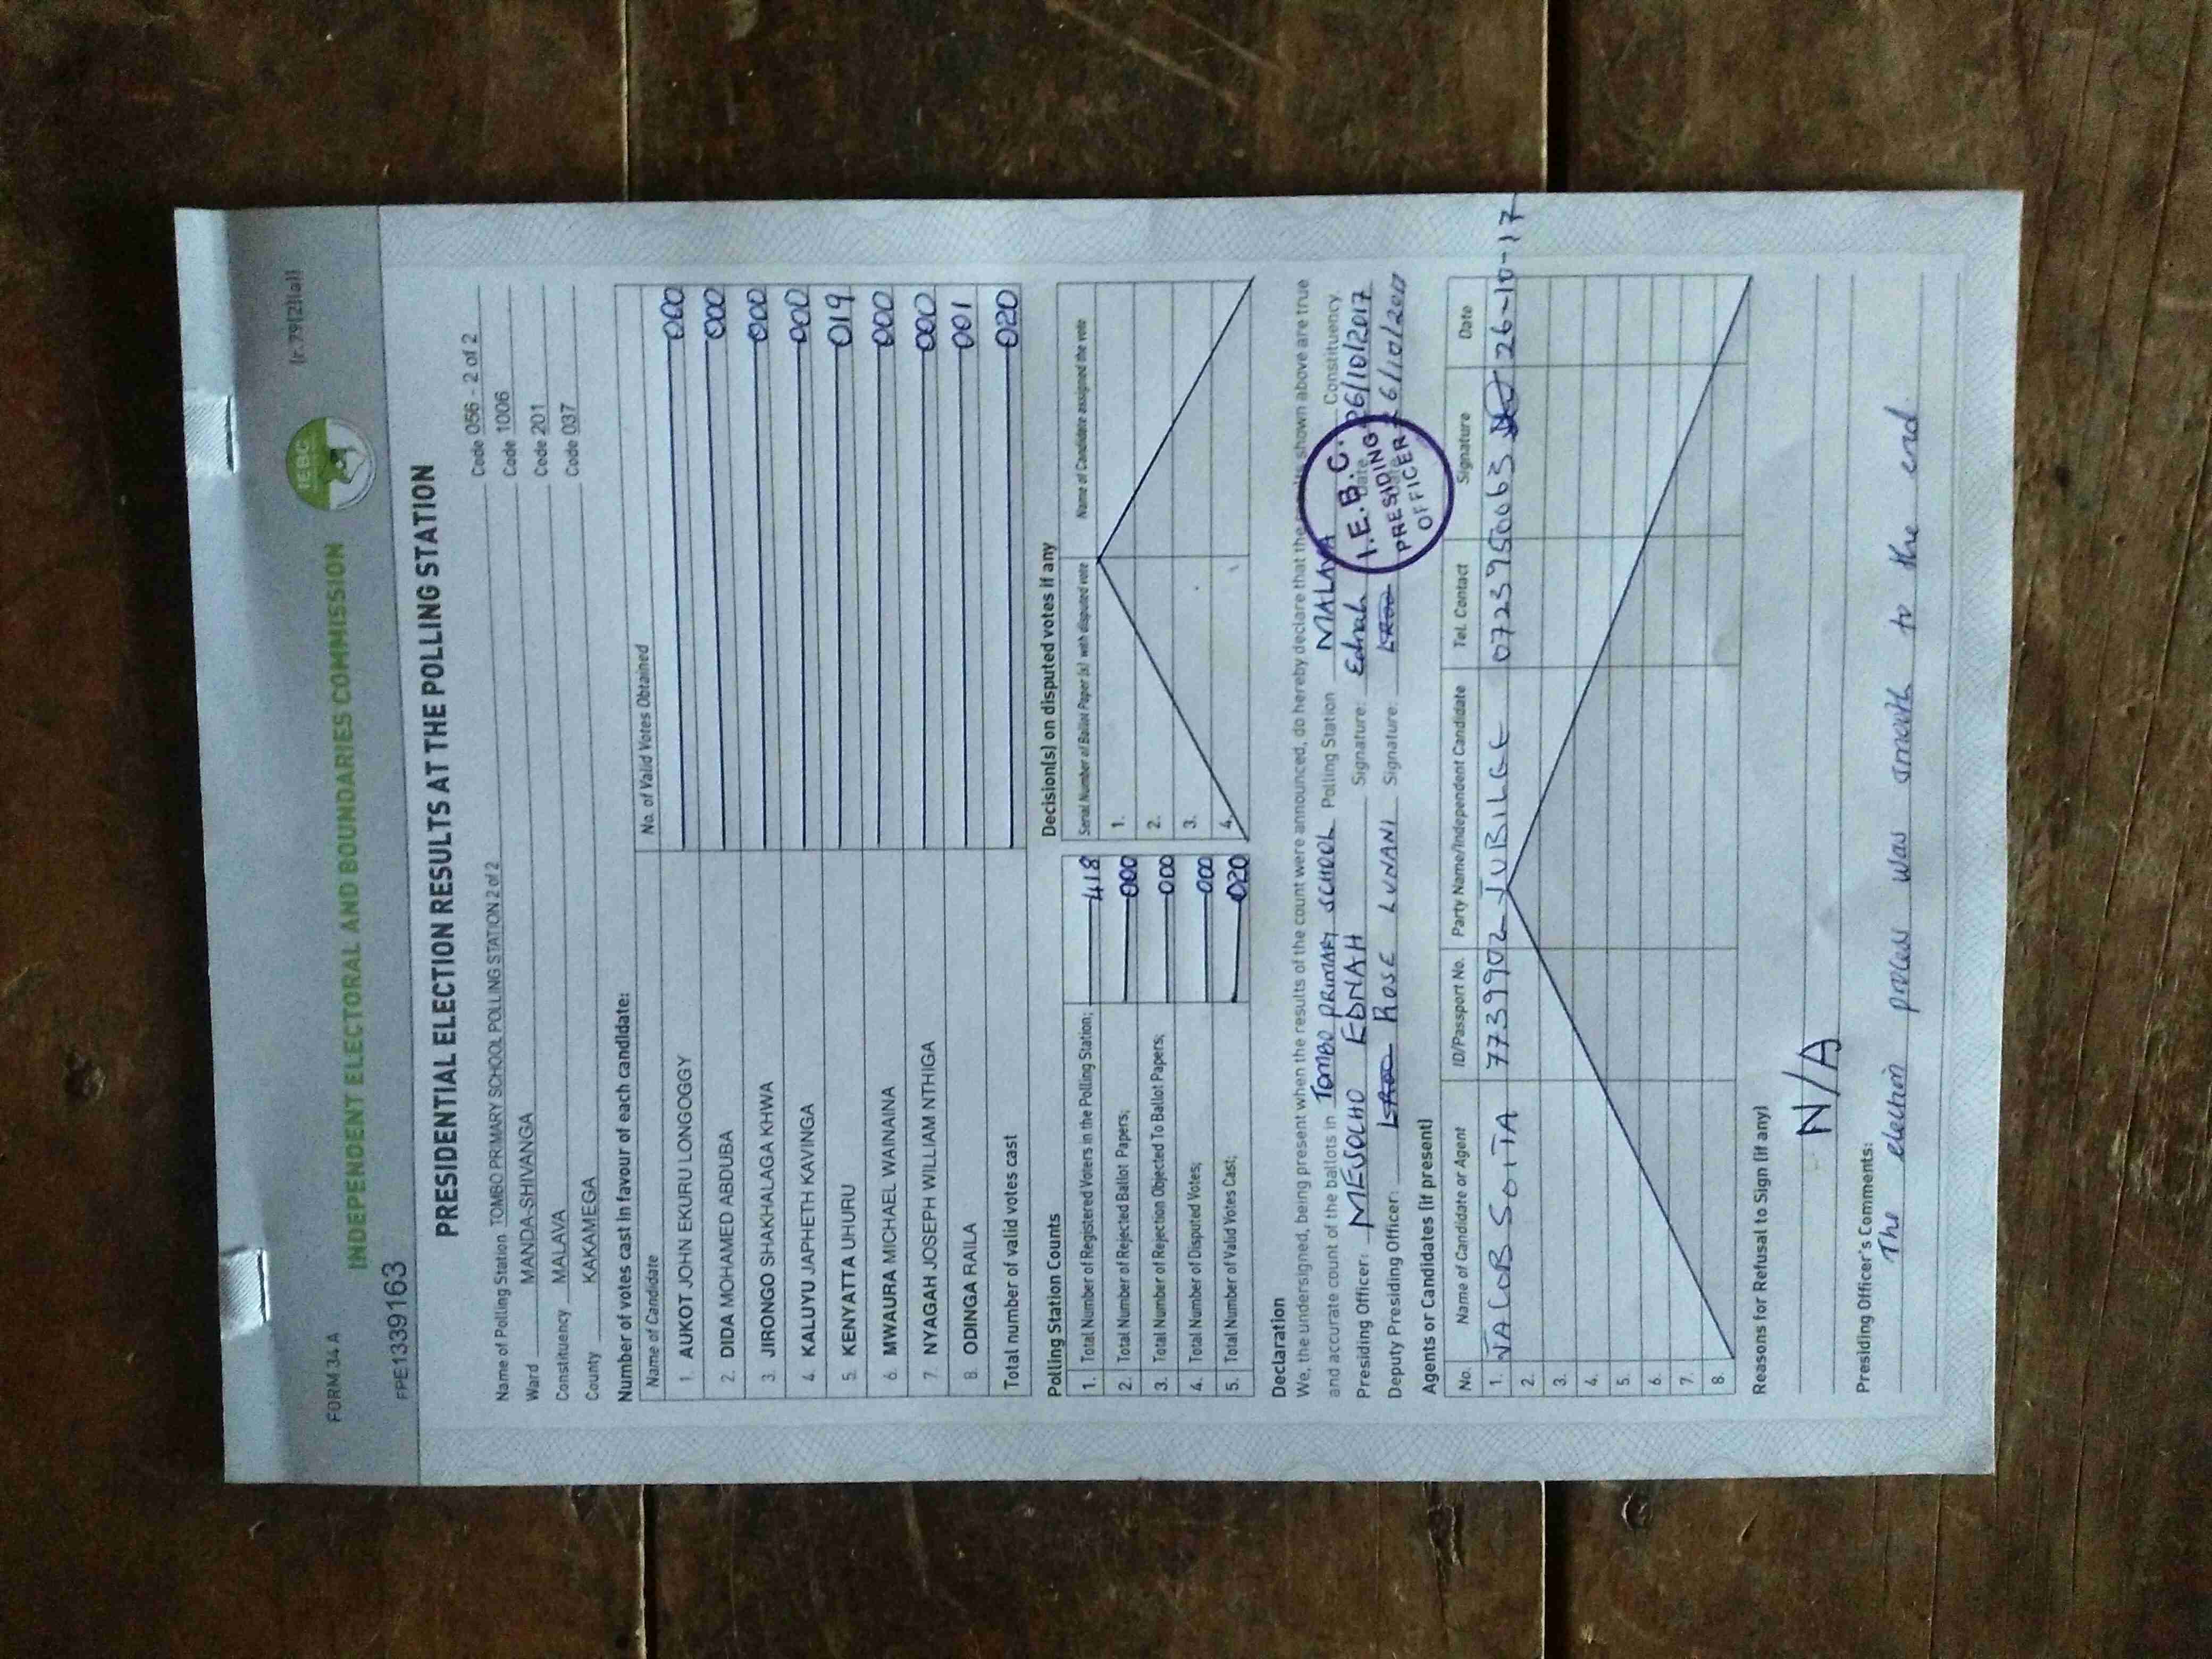 FORM 34 A
(r.79(2)(a))
INDEPENDENT ELECTORAL AND BOUNDARIES COMMISSION
IEBC
FPE1339163
PRESIDENTIAL ELECTION RESULTS AT THE POLLING STATION
Name of Polling Station TOMBO PRIMARY SCHOOL POLLING STATION 2 of 2 Code 056 - 2 of 2
Ward MANDA-SHIVANGA Code 1006
Constituency MALAVA Code 201
County KAKAMEGA Code 037
Number of votes cast in favour of each candidate:
Name of Candidate No. of Valid Votes Obtained
1. AUKOT JOHN EKURU LONGOGGY 000
2. DIDA MOHAMED ABDUBA 000
3. JIRONGO SHAKHALAGA KHWA 000
4. KALUYU JAPHETH KAVINGA 000
5. KENYATTA UHURU 019
6. MWAURA MICHAEL WAINAINA 000
7. NYAGAH JOSEPH WILLIAM NTHIGA 000
8. ODINGA RAILA 001
Total number of valid votes cast 020
Polling Station Counts
1. Total Number of Registered Voters in the Polling Station; 418
2. Total Number of Rejected Ballot Papers; 000
3. Total Number of Rejection Objected To Ballot Papers; 000
4. Total Number of Disputed Votes; 000
5. Total Number of Valid Votes Cast; 020
Decision(s) on disputed votes if any
Serial Number of Ballot Paper (s) with disputed vote Name of Candidate assigned the vote
1.
2.
3.
4.
Declaration
We, the undersigned, being present when the results of the count were announced, do hereby declare that the results shown above are true
and accurate count of the ballots in TOMBO PRIMARY SCHOOL Polling Station MALAVA Constituency
Presiding Officer: MESOCHO EDNAH Signature: Ednah Date 26/10/2017
Deputy Presiding Officer: ROSE LUNANI Signature: 26/10/2017
I.E.B.C.
PRESIDING
OFFICER
Agents or Candidates (if present)
No. Name of Candidate or Agent ID/Passport No. Party Name/Independent Candidate Tel. Contact Signature Date
1. JACOB SOITA 7739902 JUBILEE 0723950063 26-10-17
2.
3.
4.
5.
6.
7.
8.
Reasons for Refusal to Sign (if any)
N/A
Presiding Officer's Comments:
The election process was smooth to the end.